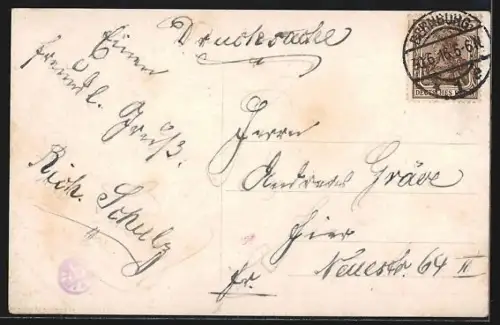 Drucksache
Einen
freundl.
Gruß.
Rich. Schulz
BERNBURG
DEUTSCHES
Herrn
Andreas Gräve
Hier
Neuestr. 64 II
fr.